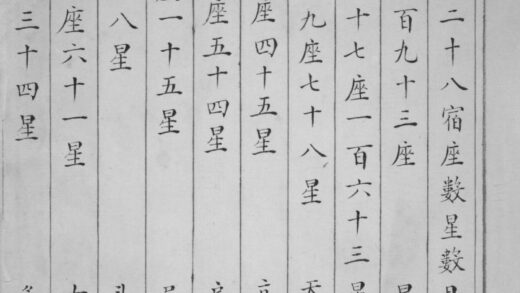 二十八宿座數星數
百九十三座
十七座一百六十三
九座七十八星
座四十五星
座五十四星
一十五星
八星
座六十一星
三十四星